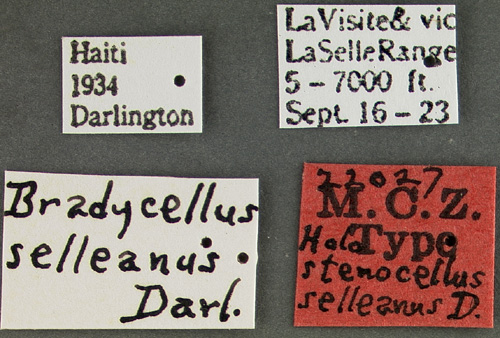 Haiti
1934
Darlington
La Visite & vic
La Selle Range
5 - 7000 ft.
Sept. 16 - 23
Bradycellus
selleanus
Darl.
22027
M. C. Z.
Holo Type
stenocellus
selleanus D.